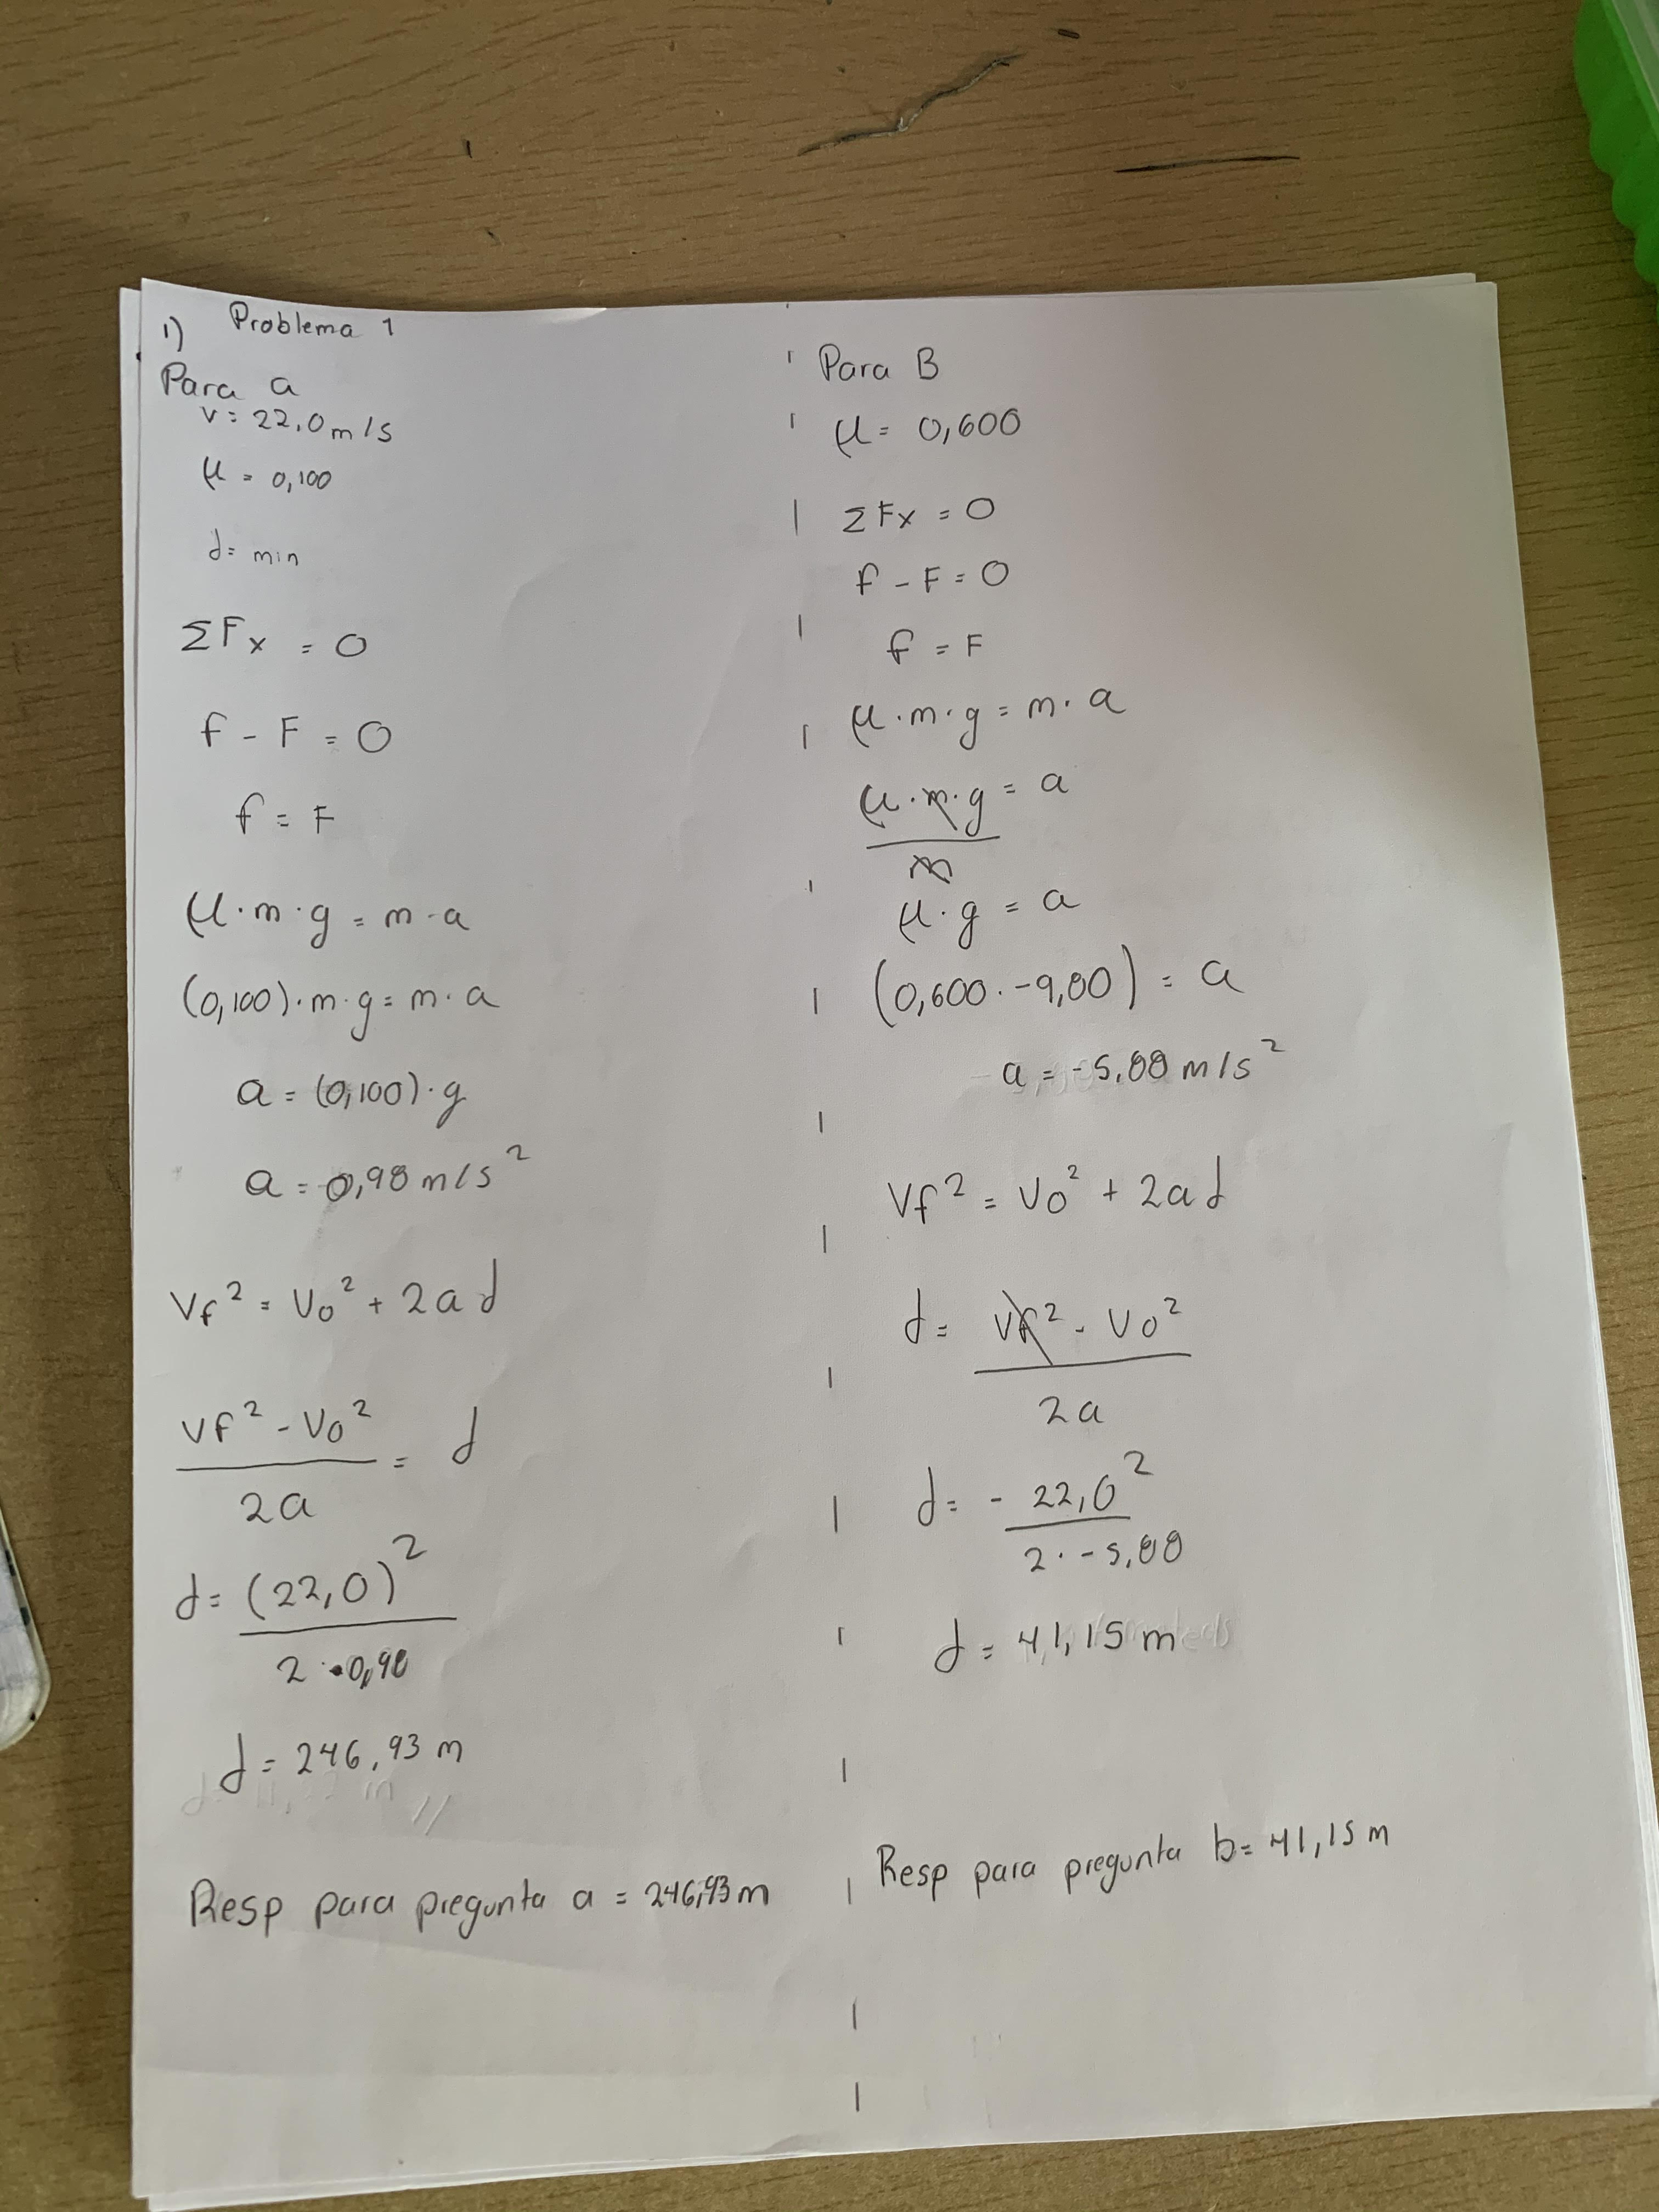 1) Problema 1
Para a
v = 22,0 m/s
μ = 0,100
d = min
ΣFx = 0
f - F = 0
f = F
μ·m·g = m·a
(0,100)·m·g = m·a
a = (0,100)·g
a = 0,98 m/s²
Vf² = Vo² + 2ad
Vf² - Vo² / 2a = d
d = (22,0)² / 2·0,98
d = 246,93 m
Resp para pregunta a = 246,93 m
Para B
μ = 0,600
ΣFx = 0
f - F = 0
f = F
μ·m·g = m·a
μ·m·g / m = a
μ·g = a
(0,600·-9,80) = a
a = -5,88 m/s²
Vf² = Vo² + 2ad
d = Vf² - Vo² / 2a
d = - 22,0² / 2·-5,88
d = 41,15 m
Resp para pregunta b = 41,15 m